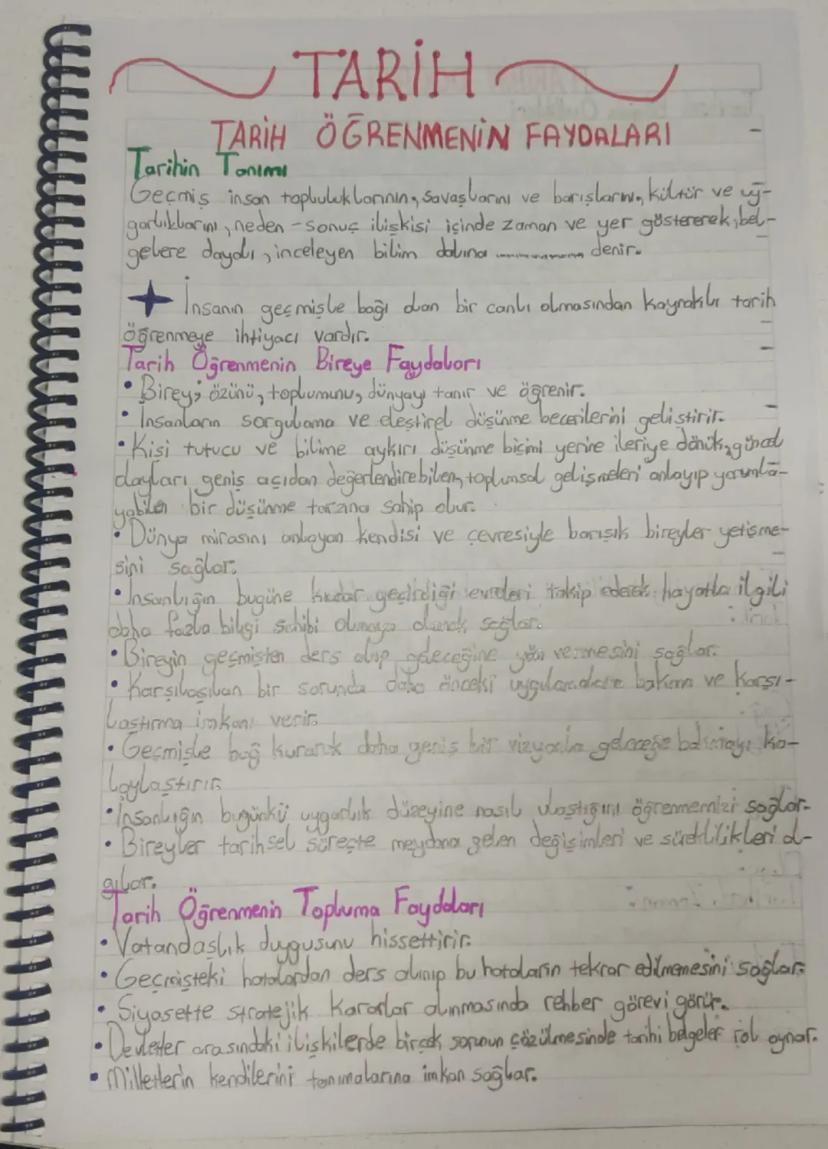 TARİH
TARİH ÖĞRENMENİN FAYDALARI
Tarihin Tanımı
Geçmiş insan topluluklarının, savaşlarını ve barışlarını, kültür ve uy-
garlıklarını, neden-sonuç ilişkisi içinde zaman ve yer göstererek, bel-
gelere dayalı, inceleyen bilim dalına ............ denir.
İnsanın geçmişle bağı olan bir canlı olmasından kaynaklı tarih
öğrenmeye ihtiyacı vardır.
Tarih Öğrenmenin Bireye Faydaları
• Birey; özünü, toplumunu, dünyayı tanır ve öğrenir.
• İnsanların sorgulama ve eleştirel düşünme becerilerini geliştirir.
• Kişi tutucu ve bilime aykırı düşünme biçimi yerine ileriye dönük, güncel
olayları geniş açıdan değerlendirebilen, toplumsal gelişmeleri anlayıp yorumla-
yabilen bir düşünme tarzına sahip olur.
• Dünya mirasını anlayan kendisi ve çevresiyle barışık bireyler yetişme-
sini sağlar.
• İnsanlığın bugüne kadar geçirdiği evreleri takip ederek hayatla ilgili
daha fazla bilgi sahibi olmaya olanak sağlar.
• Bireyin geçmişten ders alıp geleceğine yön vermesini sağlar.
• Karşılaşılan bir sorunda daha önceki uygulamalara bakma ve karşı-
laştırma imkanı verir.
• Geçmişle bağ kurarak daha geniş bir vizyonla geleceğe bakmayı ko-
laylaştırır.
• İnsanlığın bugünkü uygarlık düzeyine nasıl ulaştığını öğrenmemizi sağlar.
• Bireyler tarihsel süreçte meydana gelen değişimleri ve süreklilikleri al-
gılar.
Tarih Öğrenmenin Topluma Faydaları
• Vatandaşlık duygusunu hissettirir.
• Geçmişteki hatalardan ders alınıp bu hataların tekrar edilmemesini sağlar.
• Siyasette stratejik kararlar alınmasında rehber görevi görür.
• Devletler arasındaki ilişkilerde birçok sorunun çözülmesinde tarihi belgeler rol oynar.
• Milletlerin kendilerini tanımalarına imkan sağlar.